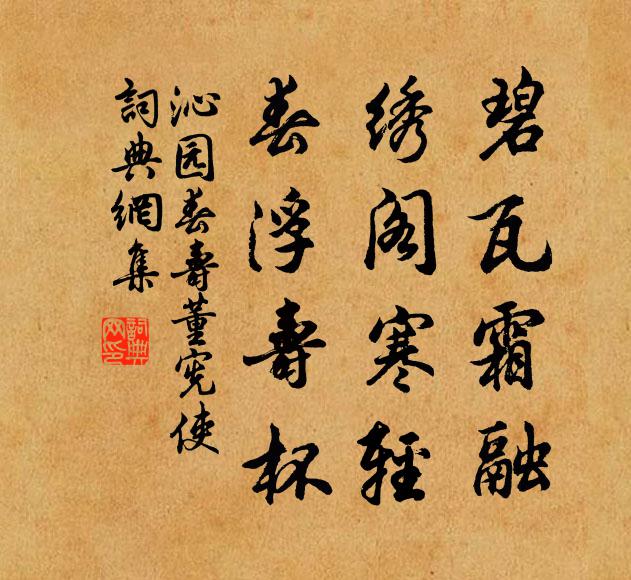 碧瓦霜融
绣阁寒轻
春浮壽杯
沁园春壽董宪使
詞典網集
詞典